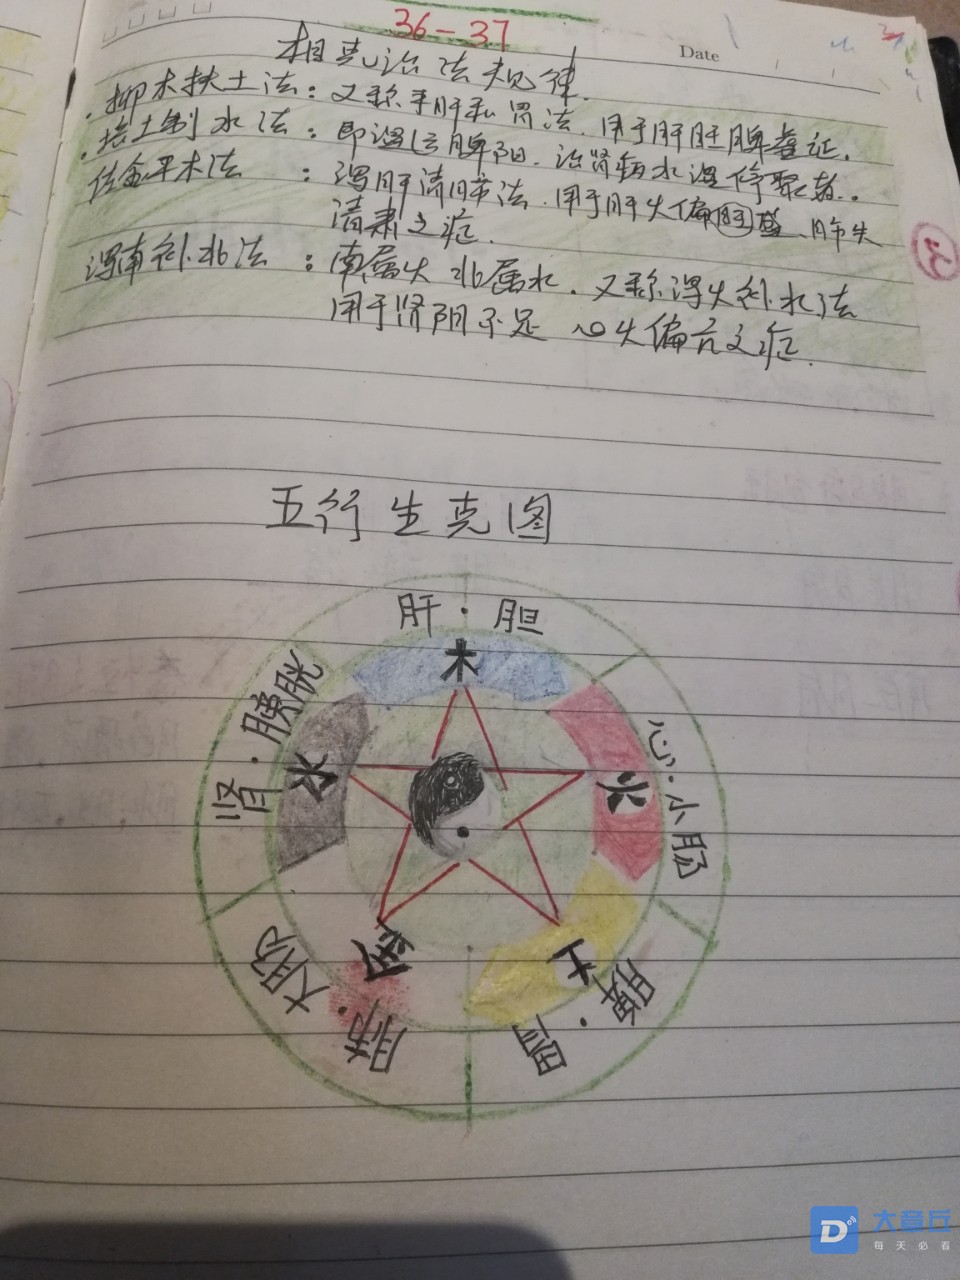 36-37
Date
相克治法规律
抑木扶土法：又称平肝和胃法．用于肝旺脾虚证．
培土制水法：即温运脾阳．治肾病水湿停聚
佐金平木法：泻肝清肺法．用于肝火偏旺盛、肺失
清肃之症．
泻南补北法：南属火 北属水．又称泻火补水法
用于肾阴不足 心火偏亢之症．
3
五行生克图
肝·胆
木
肾·膀胱
水
心·小肠
火
大肠
肺·
金
脾·胃
土
大章丘
每天必看